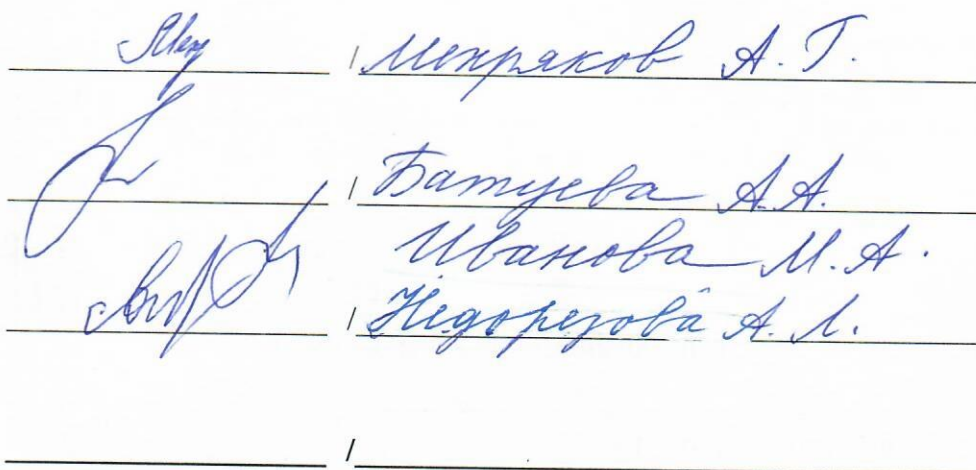 / Мекряков А. Г.
/ Батуева А.А.
Иванова М.А.
/ Недорезова А. Л.
/